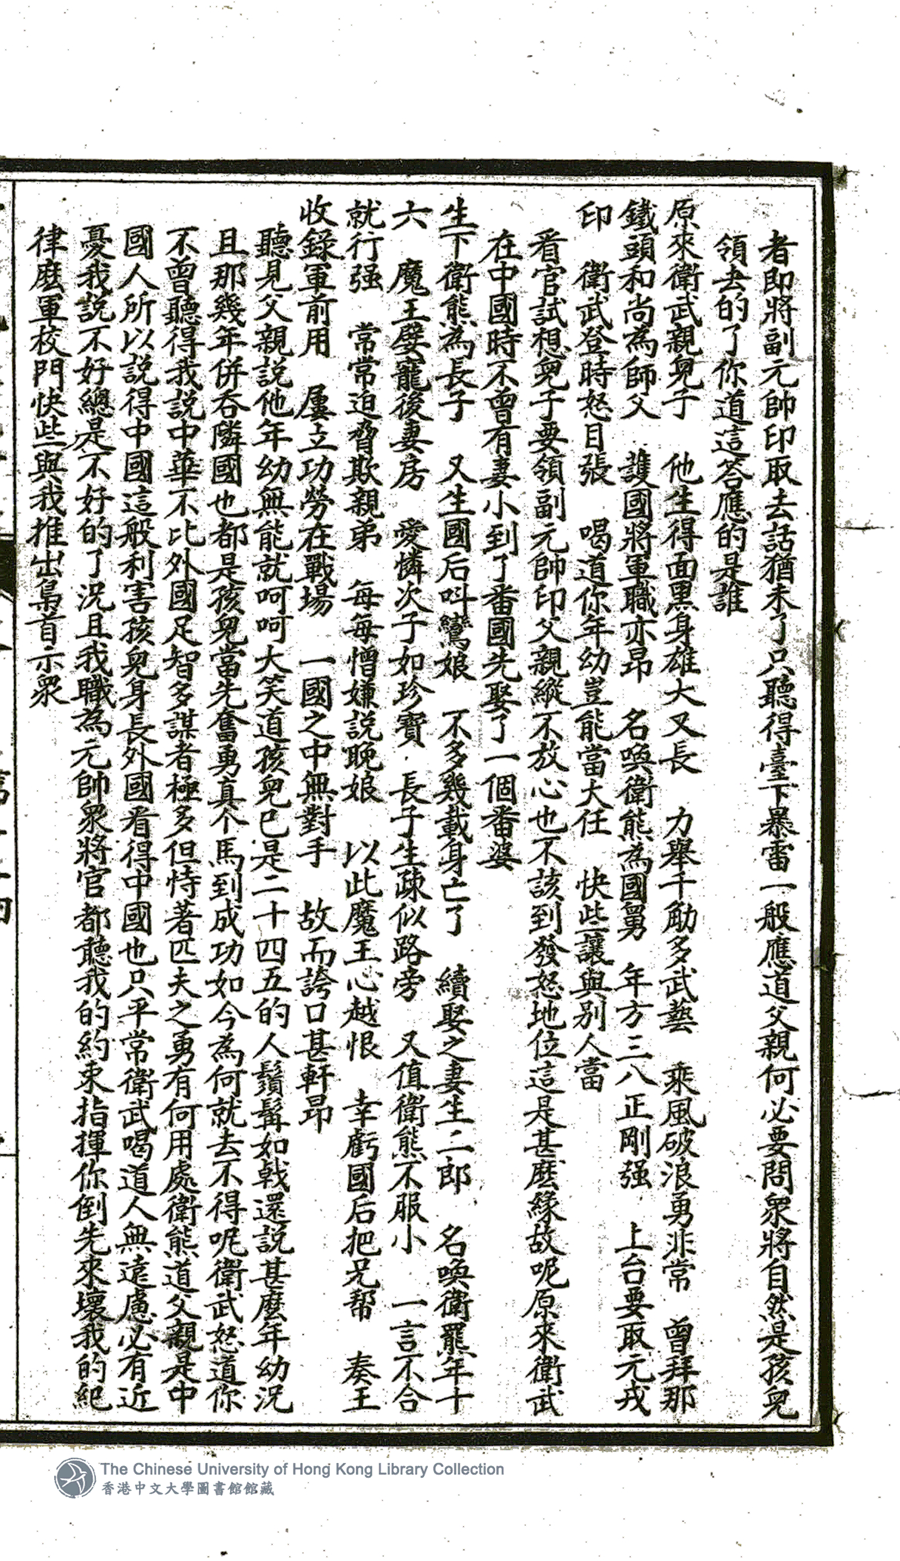 者即將副元帥印取去話猶未了只聽得臺下暴雷一般應道父親何必要問衆將自然是孩兒
領去的了你道這答應的是誰
原來衛武親兒子　他生得面黑身雄大又長　力舉千觔多武藝　乘風破浪勇非常　曾拜那
鐵頭和尚為師父　護國將軍職亦昂　名喚衛熊為國舅　年方三八正剛强　上台要取元戎
印　衛武登時怒目張　喝道你年幼豈能當大任　快些讓與別人當
看官試想兒子要領副元帥印父親縱不放心也不該到發怒地位這是甚麽緣故呢原來衛武
在中國時不曾有妻小到了番國先娶了一個番婆
生下衛熊為長子　又生國后呌鸞娘　不多幾載身亡了　續娶之妻生二郎　名喚衛羆年十
六　魔王嬖寵後妻房　愛憐次子如珍寶　長子生疎似路旁　又值衛熊不服小　一言不合
就行强　常常迫脅欺親弟　每每憎嫌説晚娘　以此魔王心越恨　幸虧國后把兄幫　奏王
收錄軍前用　屢立功勞在戰場　一國之中無對手　故而誇口甚軒昂
聽見父親説他年幼無能就呵呵大笑道孩兒已是二十四五的人鬚髯如戟還説甚麽年幼況
且那幾年併吞隣國也都是孩兒當先奮勇真个馬到成功如今為何就去不得呢衛武怒道你
不曾聽得我説中華不比外國足智多謀者極多但恃著匹夫之勇有何用處衛熊道父親是中
國人所以説得中國這般利害孩兒身長外國看得中國也只平常衛武喝道人無遠慮必有近
憂我説不好總是不好的了況且我職為元帥衆將官都聽我的約束指揮你倒先來壞我的紀
律麽軍校門快些與我推出梟首示衆
The Chinese University of Hong Kong Library Collection
香港中文大學圖書館館藏